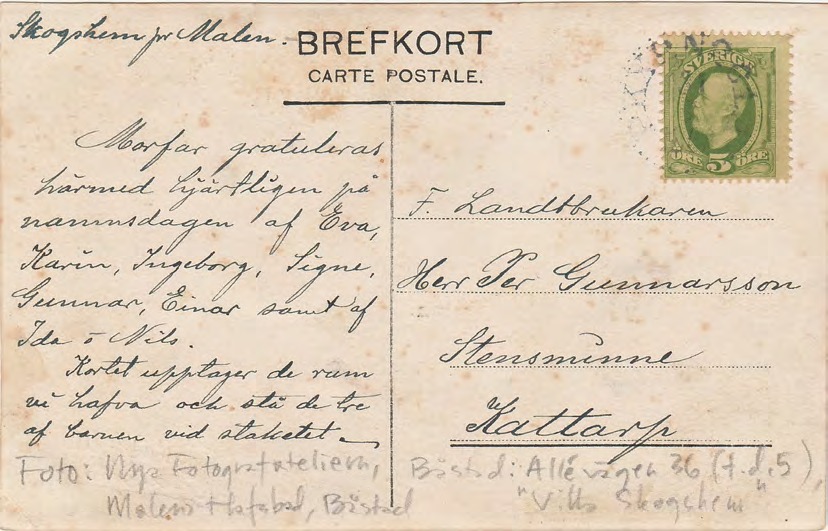 Skogshem pr Malen.
BREFKORT
CARTE POSTALE.
SVERIGE
ÖRE 5 ÖRE
Morfar gratuleras
härmed hjärtligen på
namnsdagen af Eva,
Karin, Ingeborg, Signe,
Gunnar, Einar samt af
Ida o Nils.
Kortet upptager de rum
vi hafva och stå de tre
af barnen vid staketet.
F. Landtbrukaren
Herr Per Gunnarsson
Stensminne
Kattarp
Foto: Nya Fotografateliern,
Malens Hafsbad, Båstad
Båstad: Allévägen 36 (t.d.5),
"Villa Skogshem"